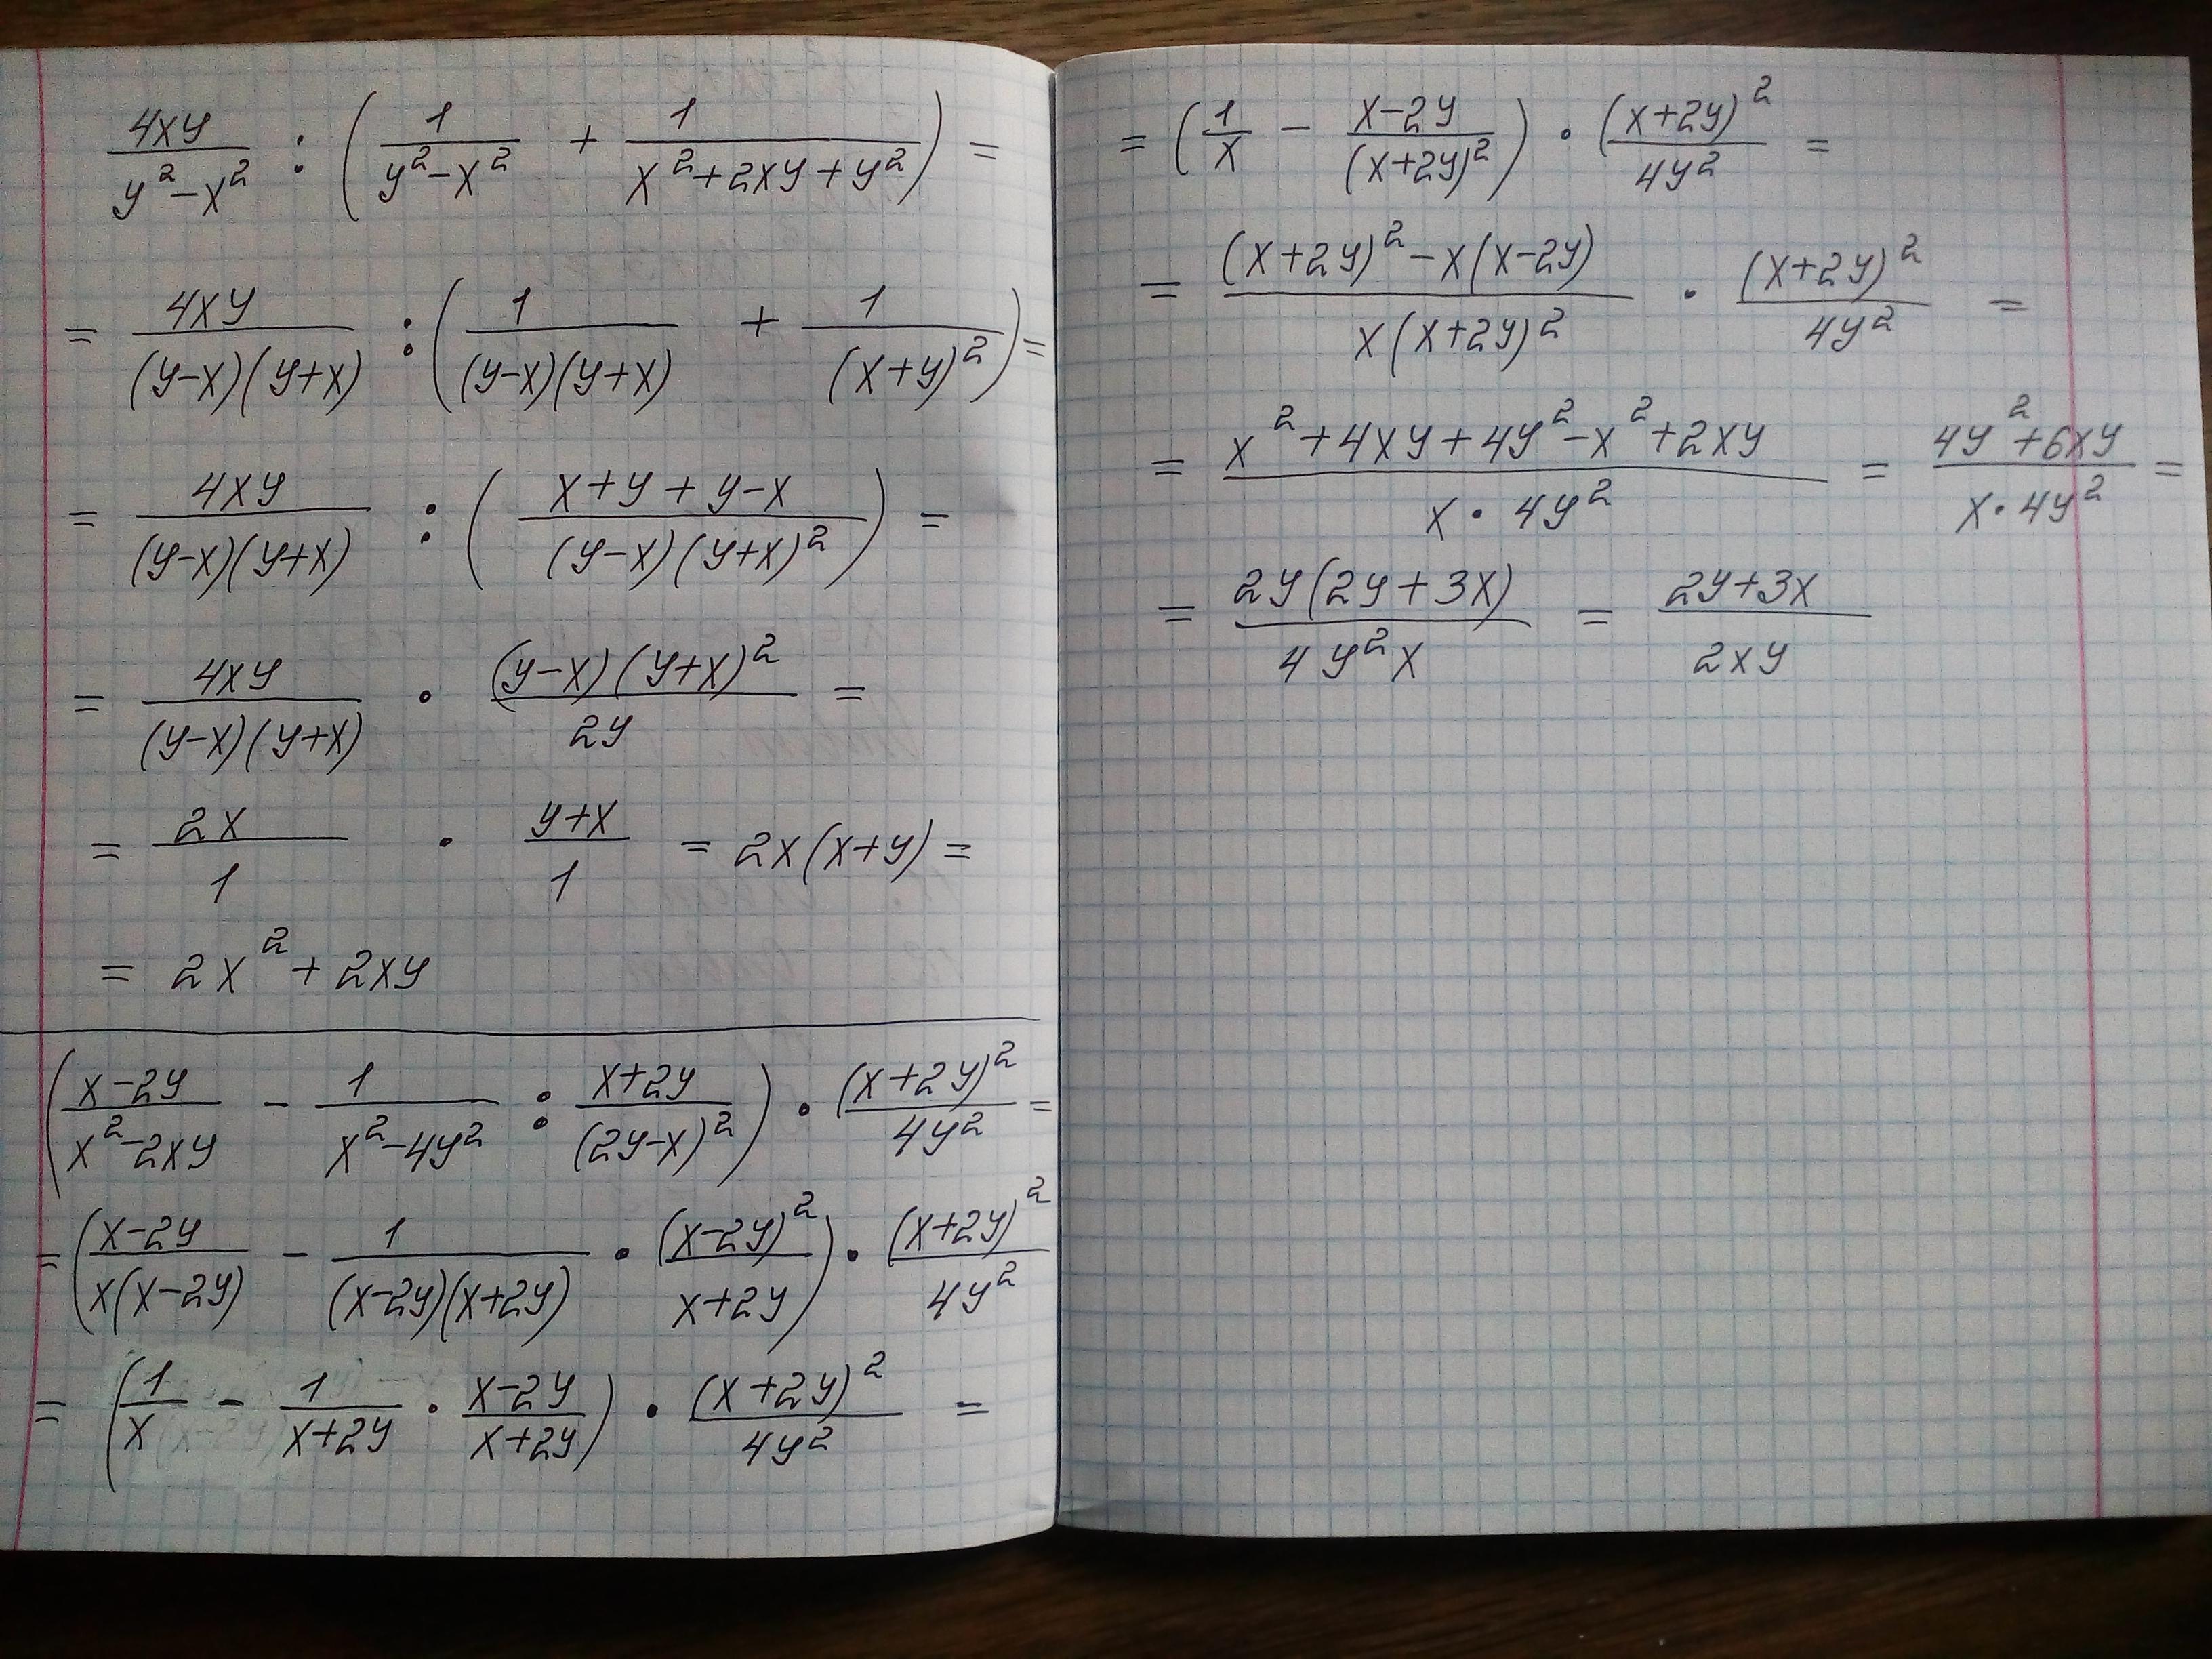 4xy/(y²-x²) : (1/(y²-x²) + 1/(x²+2xy+y²)) =
= 4xy/((y-x)(y+x)) : (1/((y-x)(y+x)) + 1/(x+y)²) =
= 4xy/((y-x)(y+x)) : ((x+y+y-x)/((y-x)(y+x)²)) =
= 4xy/((y-x)(y+x)) · (y-x)(y+x)²/2y =
= 2x/1 · (y+x)/1 = 2x(x+y) =
= 2x² + 2xy
((x-2y)/(x²-2xy) - 1/(x²-4y²) : (x+2y)/(2y-x)²) · (x+2y)²/4y² =
= ((x-2y)/(x(x-2y)) - 1/((x-2y)(x+2y)) · (x-2y)²/(x+2y)) · (x+2y)²/4y²
= (1/x - 1/(x+2y) · (x-2y)/(x+2y)) · (x+2y)²/4y² =
= (1/x - (x-2y)/(x+2y)²) · (x+2y)²/4y² =
= ((x+2y)²-x(x-2y))/(x(x+2y)²) · (x+2y)²/4y² =
= (x²+4xy+4y²-x²+2xy)/(x·4y²) = (4y²+6xy)/(x·4y²) =
= 2y(2y+3x)/(4y²x) = (2y+3x)/(2xy)